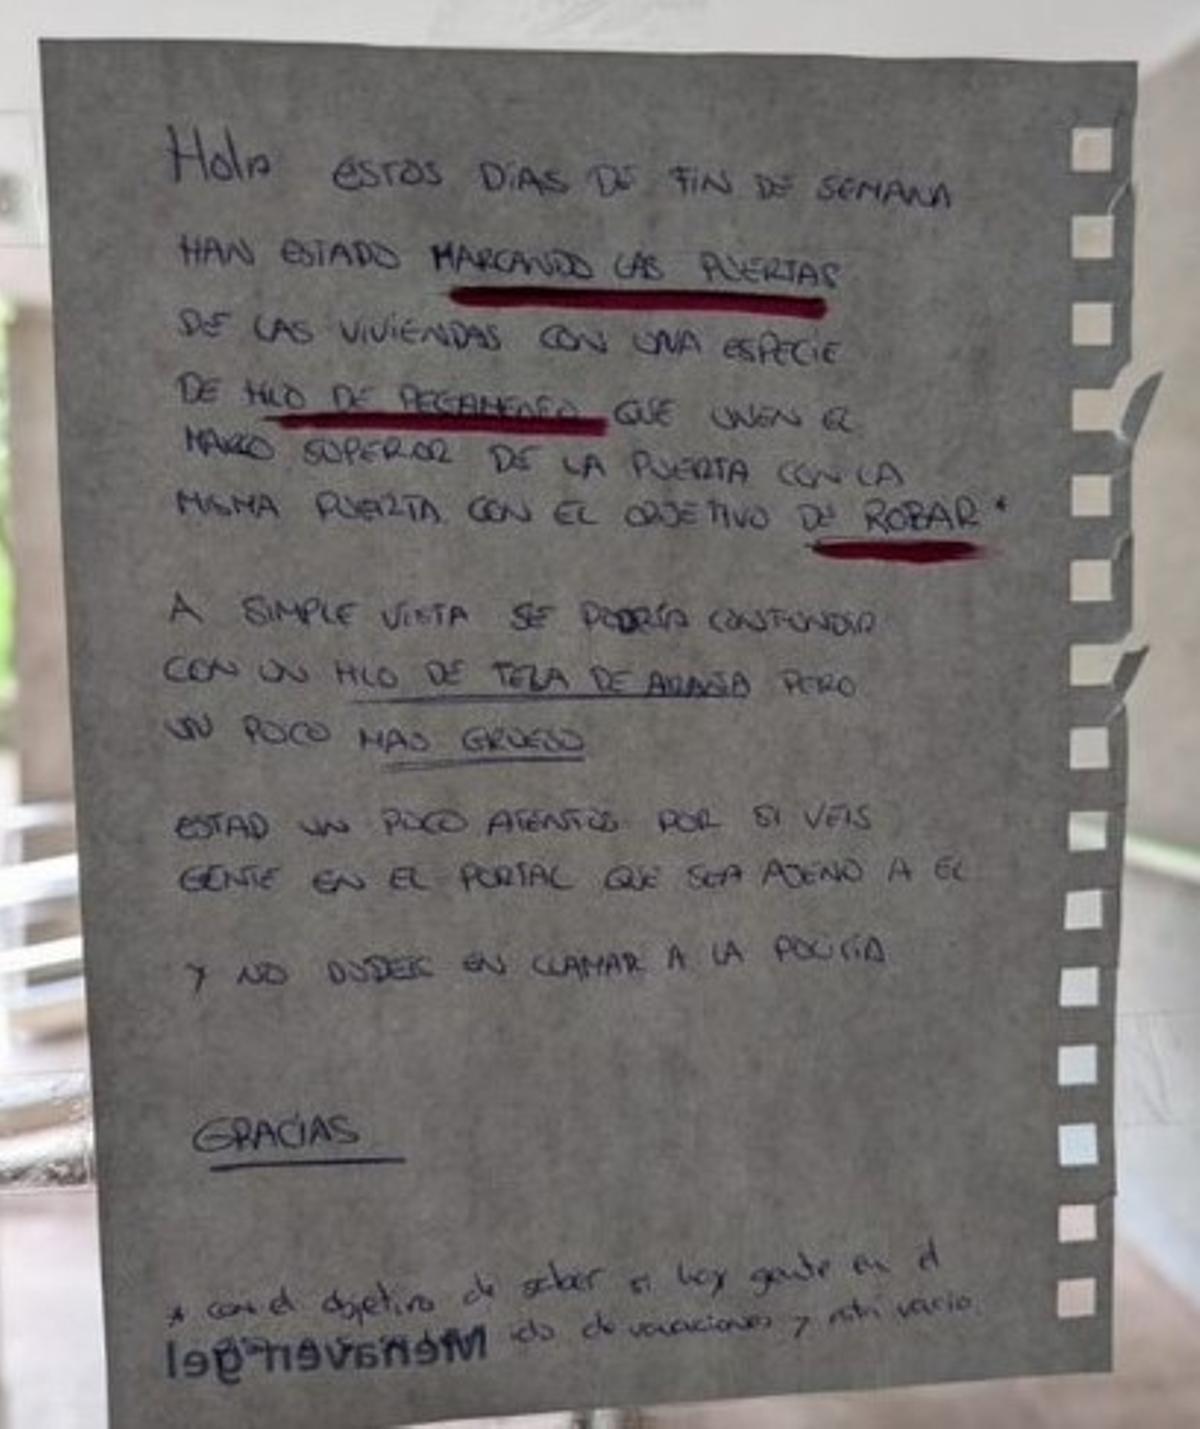 Hola ESTOS DÍAS DE FIN DE SEMANA
HAN ESTADO MARCANDO LAS PUERTAS
DE LAS VIVIENDAS CON UNA ESPECIE
DE HILO DE PEGAMENTO QUE UNEN EL
MARCO SUPERIOR DE LA PUERTA CON LA
MISMA PUERTA. CON EL OBJETIVO DE ROBAR *
A SIMPLE VISTA SE PODRÍA CONFUNDIR
CON UN HILO DE TELA DE ARAÑA PERO
UN POCO MAS GRUESO
ESTAD UN POCO ATENTOS POR SI VEIS
GENTE EN EL PORTAL QUE SEA AJENO A EL
Y NO DUDEIS EN LLAMAR A LA POLICÍA
GRACIAS
* con el objetivo de saber si hay gente en el
ido de vacaciones y está vacío.